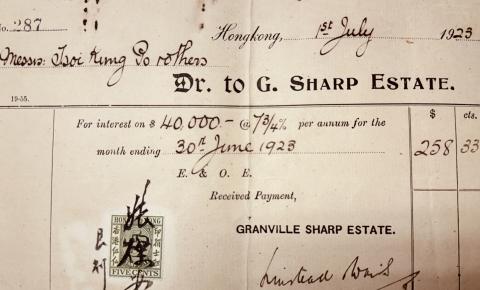 No. 287
Hongkong, 1st July 1923
Messrs: Tsoi Kung Po rothers
Dr. to G. SHARP ESTATE.
19-55.
$ cts.
For interest on $ 40,000.- @ 7 3/4% per annum for the
month ending 30th June 1923 258 33
E. & O. E.
Received Payment,
GRANVILLE SHARP ESTATE.
HONG KONG
FIVE CENTS
Linstead